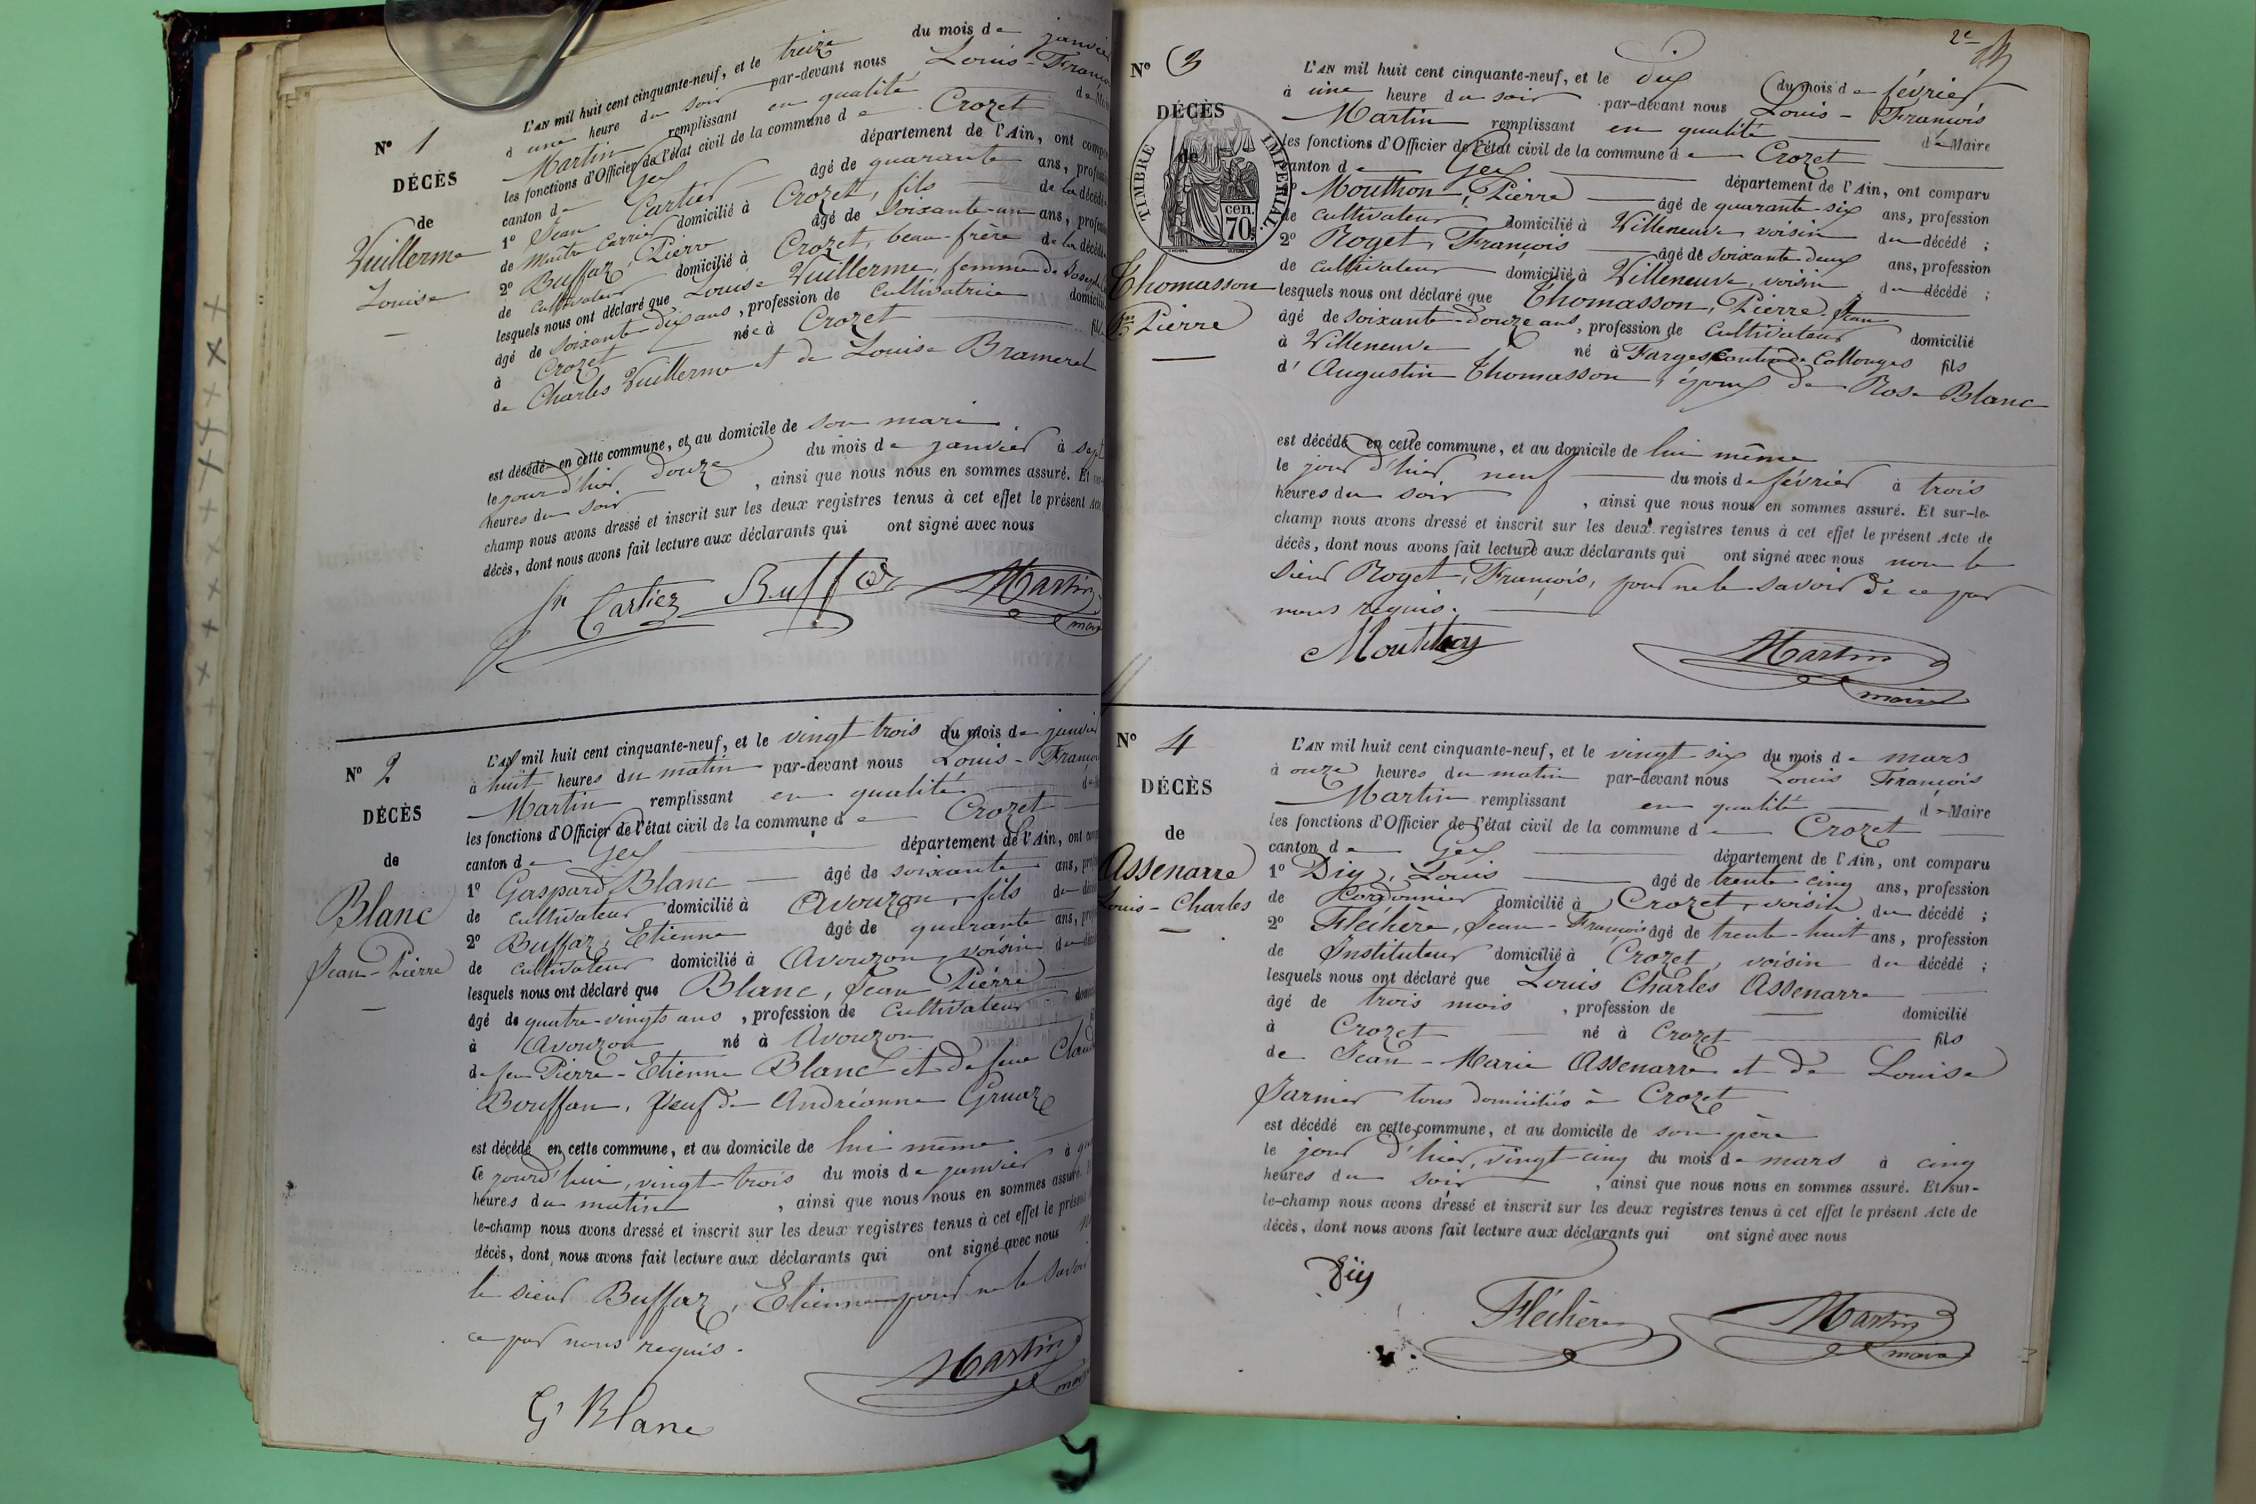 Nº 1
DÉCÈS
de
Vuillerme
Louise
L'AN mil huit cent cinquante-neuf, et le treize du mois de janvier
à une heure du soir par-devant nous Louis-François
Martin remplissant en qualité de Maire
les fonctions d'Officier de l'état civil de la commune de Crozet
canton de Gex département de l'Ain, ont comparu
1º Jean Cartier âgé de quarante ans, profession
de Maître Carrier domicilié à Crozet, fils de la décédée
2º Buffaz, Pierre âgé de soixante-un ans, profession
de Cultivateur domicilié à Crozet, beau-frère de la décédée
lesquels nous ont déclaré que Louise Vuillerme, femme de Joseph
âgé de soixante dix ans, profession de Cultivatrice domicilié
à Crozet née à Crozet fille
de Charles Vuillerme et de Louise Brameret
est décédé en cette commune, et au domicile de son mari
le jour d'hier douze du mois de janvier à sept
heures du soir, ainsi que nous nous en sommes assuré. Et sur-
champ nous avons dressé et inscrit sur les deux registres tenus à cet effet le présent Acte
décès, dont nous avons fait lecture aux déclarants qui ont signé avec nous
Jn Cartier Buffaz Martin
maire
Nº 2
DÉCÈS
de
Blanc
Jean-Pierre
L'AN mil huit cent cinquante-neuf, et le vingt trois du mois de janvier
à huit heures du matin par-devant nous Louis-François
Martin remplissant en qualité
les fonctions d'Officier de l'état civil de la commune de Crozet
canton de Gex département de l'Ain, ont
1º Gaspard Blanc âgé de soixante ans,
de cultivateur domicilié à Avouzon, fils du
2º Buffaz, Etienne âgé de quarante ans,
de cultivateur domicilié à Avouzon, voisin du
lesquels nous ont déclaré que Blanc, Jean Pierre
âgé de quatre-vingts ans, profession de Cultivateur
à Avouzon né à Avouzon
de feu Pierre-Etienne Blanc et de feue
Bouffan, Veuf de Andréanne Gruaz
est décédé en cette commune, et au domicile de lui même
le jourd'hui, vingt trois du mois de janvier à
heures du matin, ainsi que nous nous en sommes assuré.
le-champ nous avons dressé et inscrit sur les deux registres tenus à cet effet le présent
décès, dont nous avons fait lecture aux déclarants qui ont signé avec nous
le sieur Buffaz, Etienne pour ne le savoir
ce par nous requis.
Martin
G Blanc
2e
Nº 3
DÉCÈS
de
TIMBRE IMPÉRIAL
70 cen.
Thomasson
Pierre
L'AN mil huit cent cinquante-neuf, et le dix du mois de février
à une heure du soir par-devant nous Louis-François
Martin remplissant en qualité de Maire
les fonctions d'Officier de l'état civil de la commune de Crozet
canton de Gex département de l'Ain, ont comparu
1º Mouthon, Pierre âgé de quarante-six ans, profession
de cultivateur domicilié à Villeneuve voisin du décédé ;
2º Roget, François âgé de soixante deux ans, profession
de cultivateur domicilié à Villeneuve, voisin du décédé ;
lesquels nous ont déclaré que Thomasson, Pierre, Jean
âgé de soixante-douze ans, profession de Cultivateur domicilié
à Villeneuve né à Farges, canton de Collonges fils
d'Augustin Thomasson, époux de Rose Blanc
est décédé en cette commune, et au domicile de lui même
le jour d'hier neuf du mois de février à trois
heures du soir, ainsi que nous nous en sommes assuré. Et sur-le-
champ nous avons dressé et inscrit sur les deux registres tenus à cet effet le présent Acte de
décès, dont nous avons fait lecture aux déclarants qui ont signé avec nous non le
sieur Roget, François, pour ne le savoir de ce par
nous requis.
Mouthon Martin
maire
Nº 4
DÉCÈS
de
Assenarre
Louis-Charles
L'AN mil huit cent cinquante-neuf, et le vingt six du mois de mars
à onze heures du matin par-devant nous Louis François
Martin remplissant en qualité de Maire
les fonctions d'Officier de l'état civil de la commune de Crozet
canton de Gex département de l'Ain, ont comparu
1º Diy, Louis âgé de trente-cinq ans, profession
de Cordonnier domicilié à Crozet, voisin du décédé ;
2º Fléchère, Jean-François âgé de trente-huit ans, profession
de Instituteur domicilié à Crozet, voisin du décédé ;
lesquels nous ont déclaré que Louis Charles Assenarre
âgé de trois mois, profession de domicilié
à Crozet né à Crozet fils
de Jean-Marie Assenarre et de Louise
Jarnier tous domiciliés à Crozet
est décédé en cette commune, et au domicile de son père
le jour d'hier, vingt-cinq du mois de mars à cinq
heures du soir, ainsi que nous nous en sommes assuré. Et sur-
le-champ nous avons dressé et inscrit sur les deux registres tenus à cet effet le présent Acte de
décès, dont nous avons fait lecture aux déclarants qui ont signé avec nous
Diy
Fléchère Martin
maire